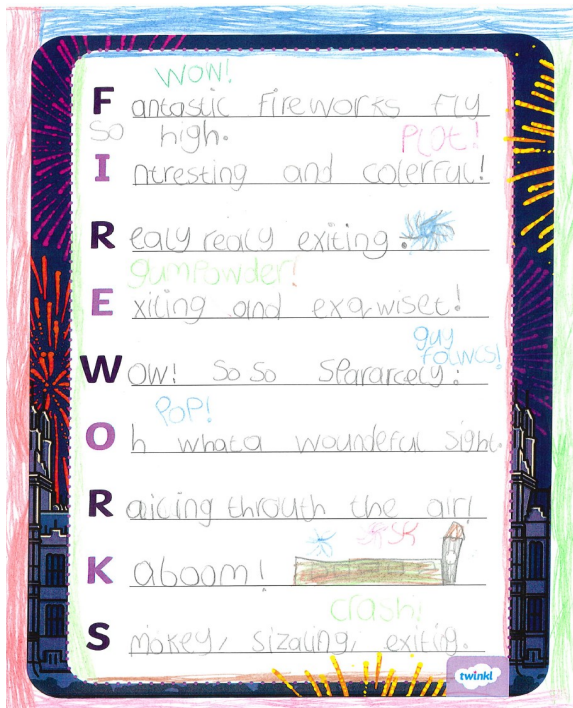 WOW!
Fantastic fireworks fly
so high.
PLOT!
Intresting and colerful!
Realy realy exiting.
gumpowder!
Exiting and exqwiset!
guy
falwcs!
Wow! So So Spararcely.
POP!
Oh what a wounderful sight.
Raicing throuth the air!
Kaboom!
Crash!
Smokey, sizaling, exitig.
twinkl